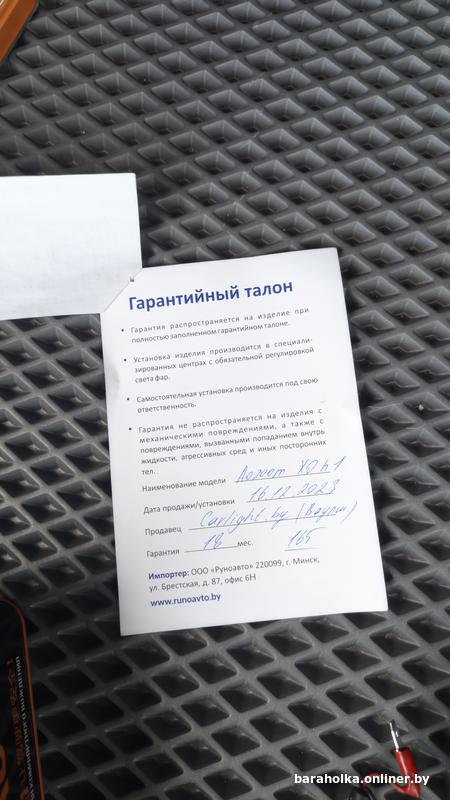 Гарантийный талон
• Гарантия распространяется на изделие при
полностью заполненном гарантийном талоне.
• Установка изделия производится в специали-
зированных центрах с обязательной регулировкой
света фар.
• Самостоятельная установка производится под свою
ответственность.
• Гарантия не распространяется на изделия с
механическими повреждениями, а также с
повреждениями, вызванными попаданием внутрь
жидкости, агрессивных сред и иных посторонних
тел.
Наименование модели
Дата продажи/установки 16.12.2023
Продавец Carlight.by
Гарантия 18 мес. 165
Импортер: ООО «Руноавто» 220099, г. Минск,
ул. Брестская, д. 87, офис 6Н
www.runoavto.by
baraholka.onliner.by